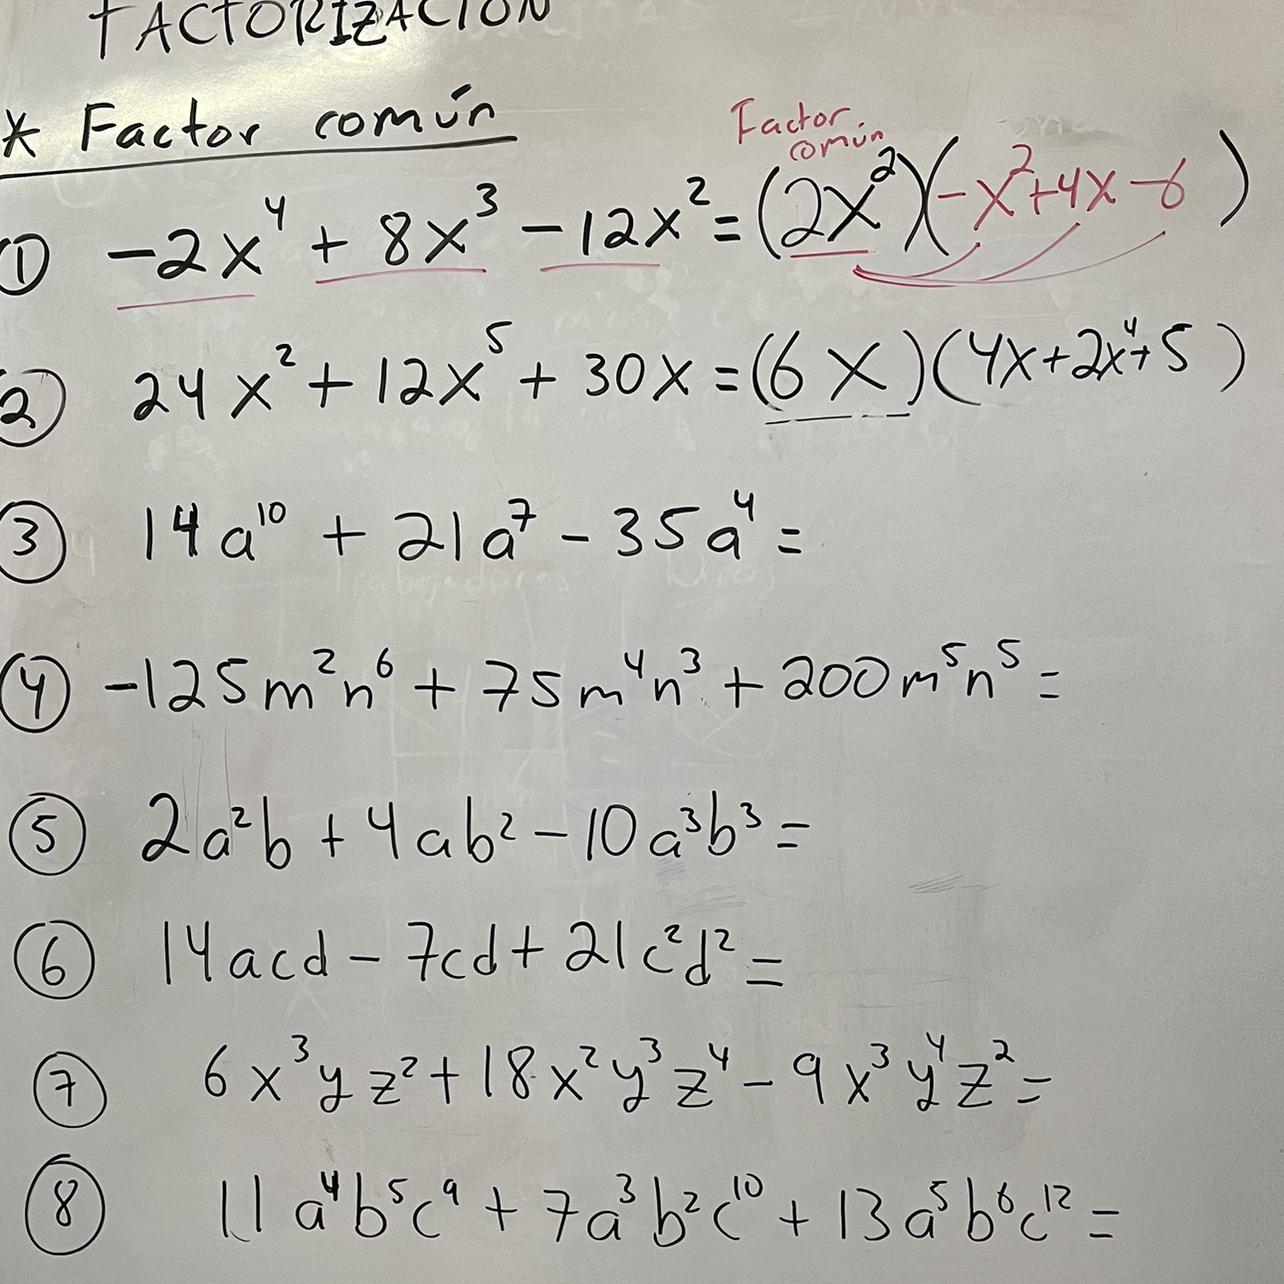 FACTORIZACIÓN
* Factor común
Factor común
① -2x⁴ + 8x³ - 12x² = (2x²)(-x²+4x-6)
② 24x² + 12x⁵ + 30x = (6x)(4x+2x⁴+5)
③ 14a¹⁰ + 21a⁷ - 35a⁴ =
④ -125m²n⁶ + 75m⁴n³ + 200m⁵n⁵ =
⑤ 2a²b + 4ab² - 10a³b³ =
⑥ 14acd - 7cd + 21c²d² =
⑦ 6x³yz² + 18x²y³z⁴ - 9x³y⁴z² =
⑧ 11a⁴b⁵c⁹ + 7a³b²c¹⁰ + 13a⁵b⁶c¹² =